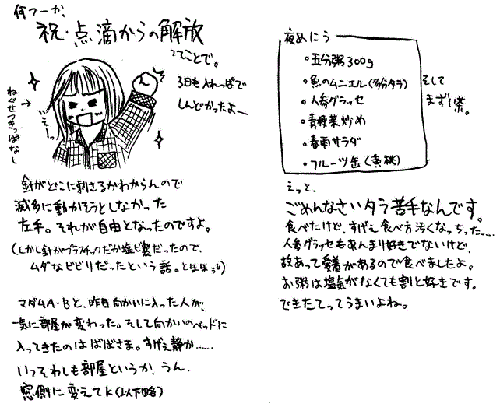 祝・点滴からの解放
てことで。
3日も入れっぱで
しんどかったよー
針がどこに刺さるかわからんので
滅多に動かそうとしなかった
左手。それが自由となったのですよ。
(しかし針がプラスチックだか塩ビ製だったので、
ムダなビビりだったという話。
マダムA・Bと、昨日向かいに入った人が、
一気に部屋が変わった。そして向かいのベッドに
入ってきたのはばばさま。すげえ静か……
いっそわしも部屋というか、うん、
窓側に変えてk(以下略)
夜めにう
・五分粥300g
・魚のムニエル(多分タラ)
・人参グラッセ
・青梗菜炒め
・春雨サラダ
・フルーツ缶(黄桃)
そして
まずい茶。
えっと、
ごめんなさいタラ苦手なんです。
食べたけど、すげえ食べ方汚くなっちった……
人参グラッセもあんまり好きでないけど、
故あって愛着があるので食べましたよ。
お粥は塩気がなくても割と好きです。
できたてってうまいよね。